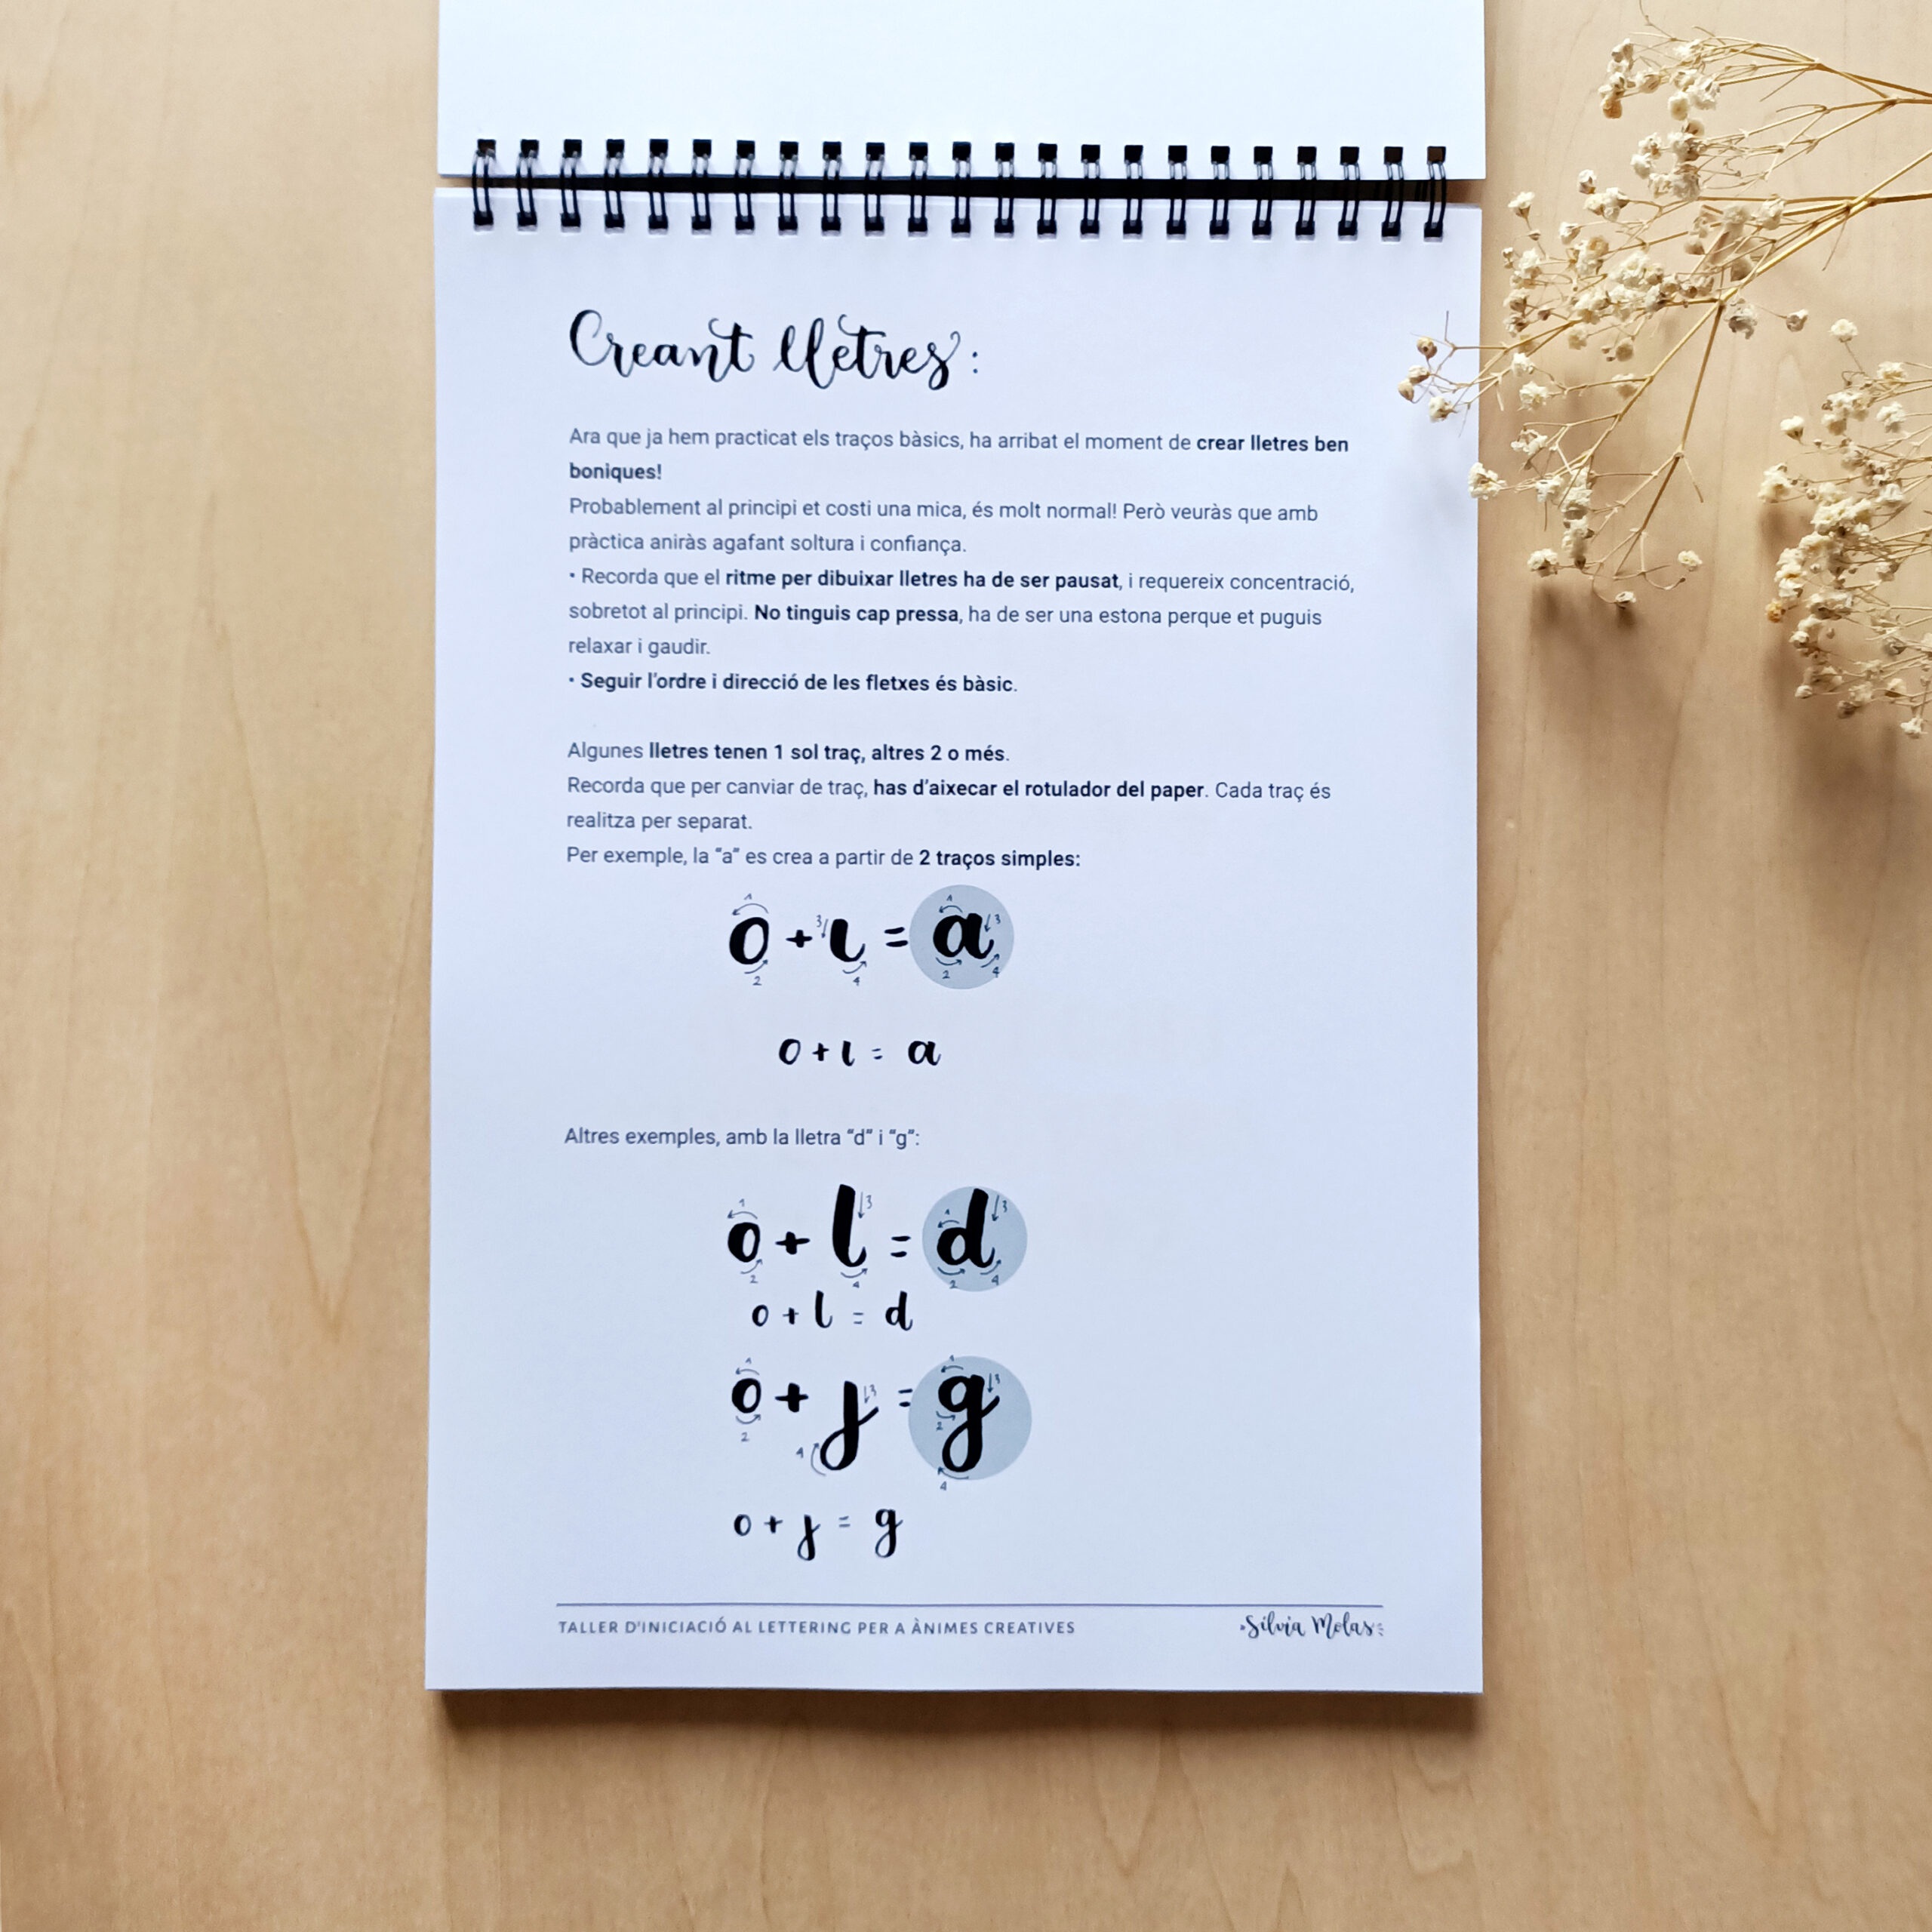 Creant lletres:
Ara que ja hem practicat els traços bàsics, ha arribat el moment de crear lletres ben
boniques!
Probablement al principi et costi una mica, és molt normal! Però veuràs que amb
pràctica aniràs agafant soltura i confiança.
• Recorda que el ritme per dibuixar lletres ha de ser pausat, i requereix concentració,
sobretot al principi. No tinguis cap pressa, ha de ser una estona perque et puguis
relaxar i gaudir.
• Seguir l'ordre i direcció de les fletxes és bàsic.
Algunes lletres tenen 1 sol traç, altres 2 o més.
Recorda que per canviar de traç, has d'aixecar el rotulador del paper. Cada traç és
realitza per separat.
Per exemple, la “a” es crea a partir de 2 traços simples:
1 3 1 3
o + ι = a
2 4 2 4
o + ι = a
Altres exemples, amb la lletra “d” i “g”:
1 3 1 3
o + l = d
2 4 2 4
o + l = d
1 3 1 3
o + ȷ = g
2 4 2 4
o + ȷ = g
TALLER D'INICIACIÓ AL LETTERING PER A ÀNIMES CREATIVES
Silvia Molas